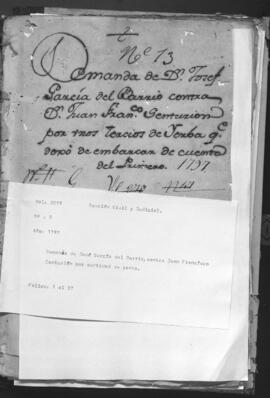 2
Nº 13
Demanda de Dn. Josef
García del Barrio contra
Dn. Juan Franco. Centurion
por tres tercios de Yerba q.
dexó de embarcar de cuenta
del Primero. 1797
Sección Civil y Judicial.
Nº. 8
Año: 1797
Demanda de José García del Barrio, contra Juan Francisco
Centurión por cantidad de yerba.
Folios: 1 al 27